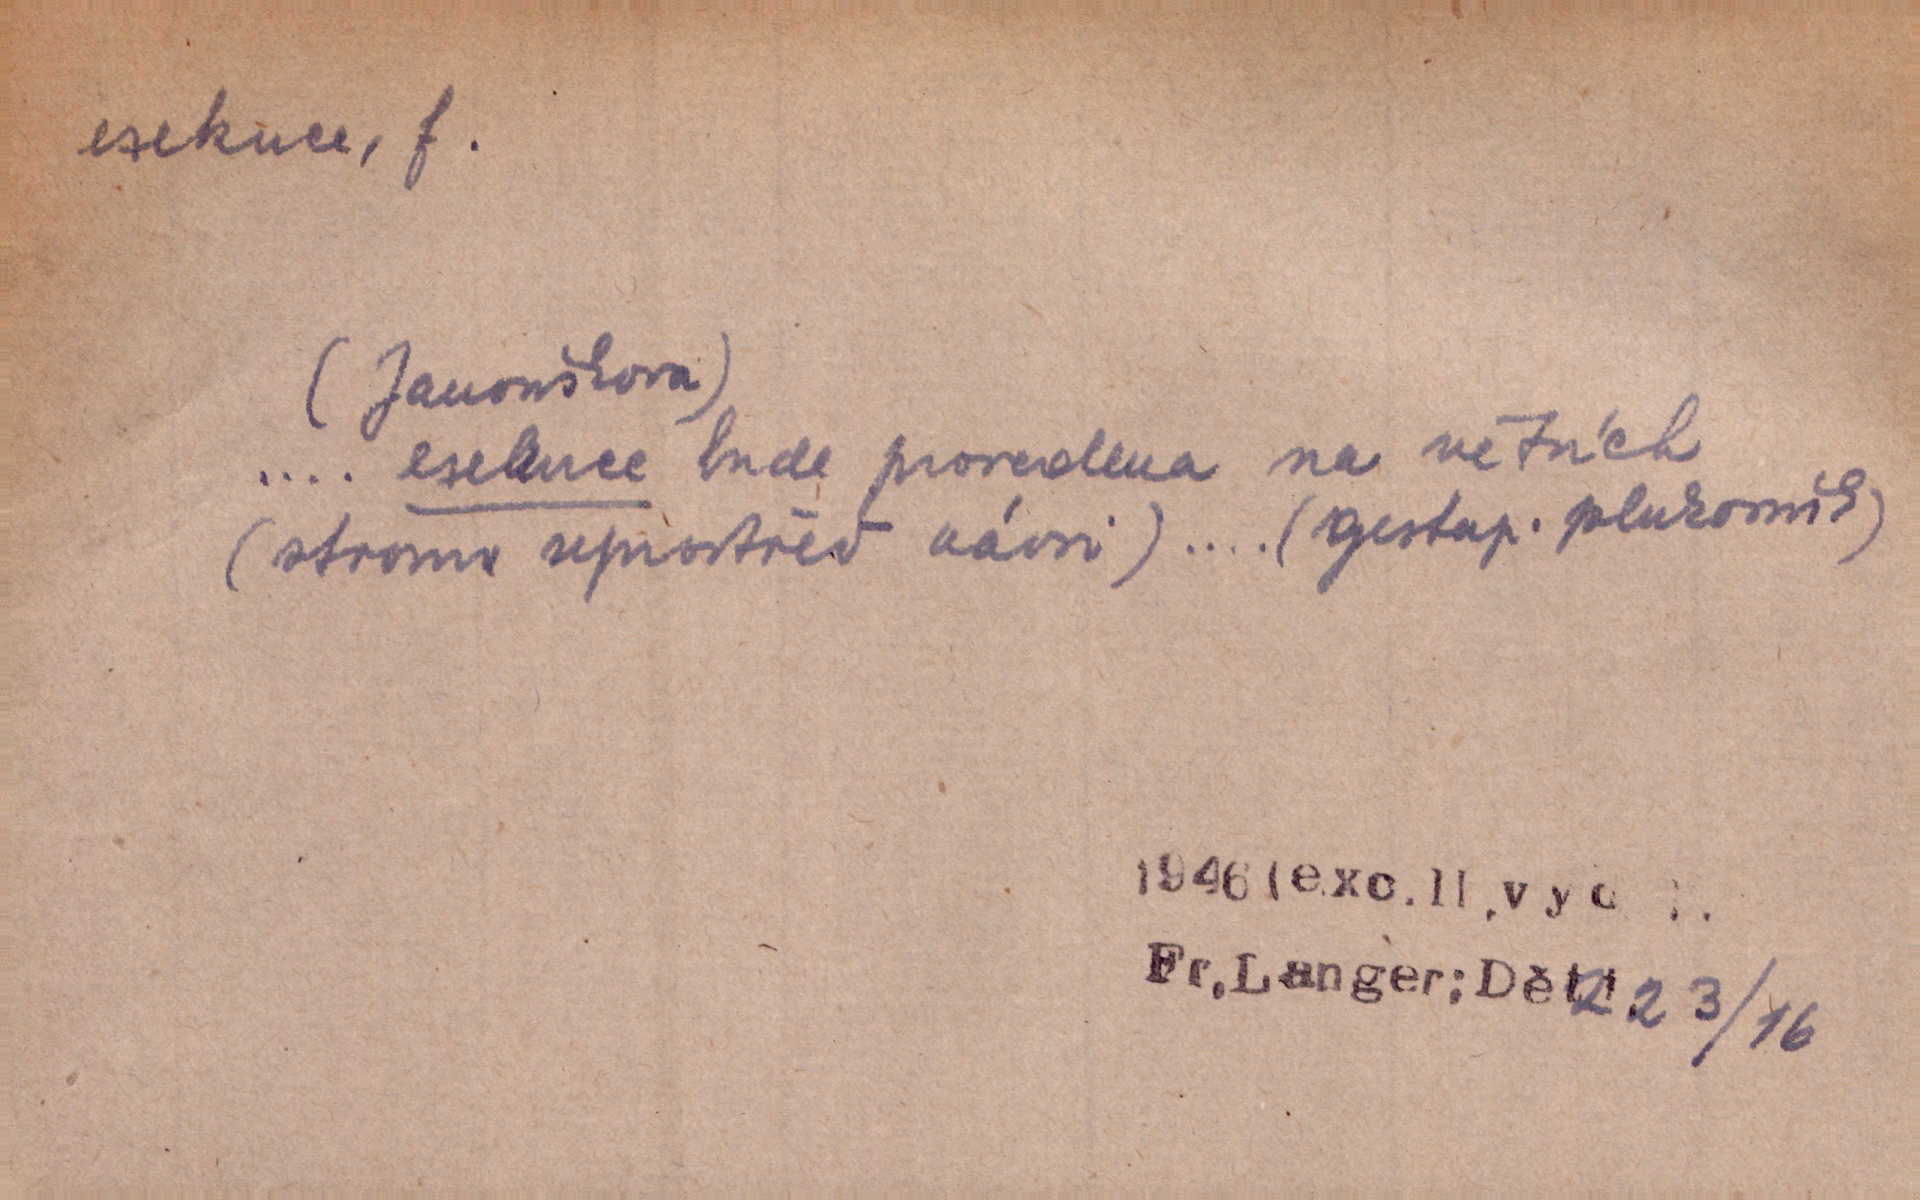 exekuce, f.
(Janouškova)
.... exekuce bude provedena na větvích
(stromu uprostřed návsi) .... (gestap. plukovník)
1946 (exc. II. vyd.).
Fr. Langer: Děti 223/16